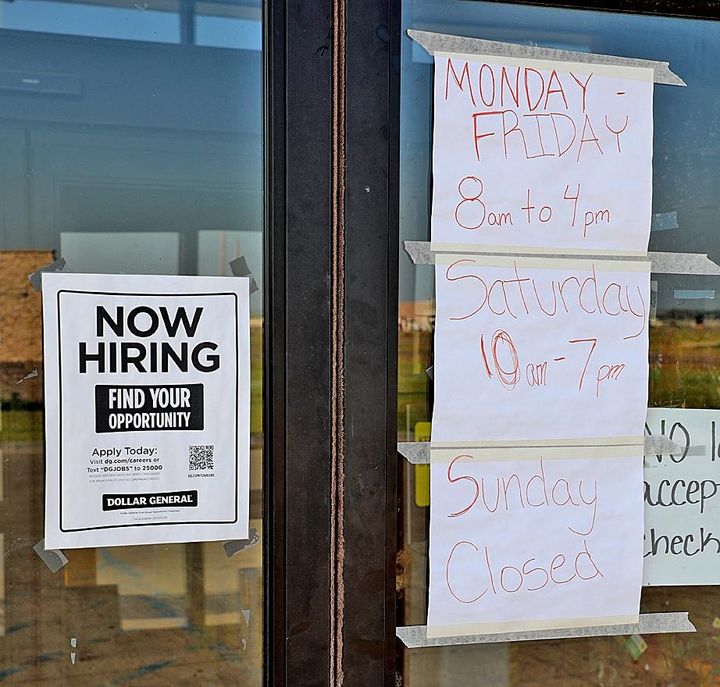 NOW
HIRING
FIND YOUR
OPPORTUNITY
Apply Today:
Visit dg.com/careers or
Text "DGJOBS" to 25000
DG.COM/CAREERS
DOLLAR GENERAL
MONDAY -
FRIDAY
8am to 4pm
Saturday
10am-7pm
Sunday
Closed
NO
accep
check